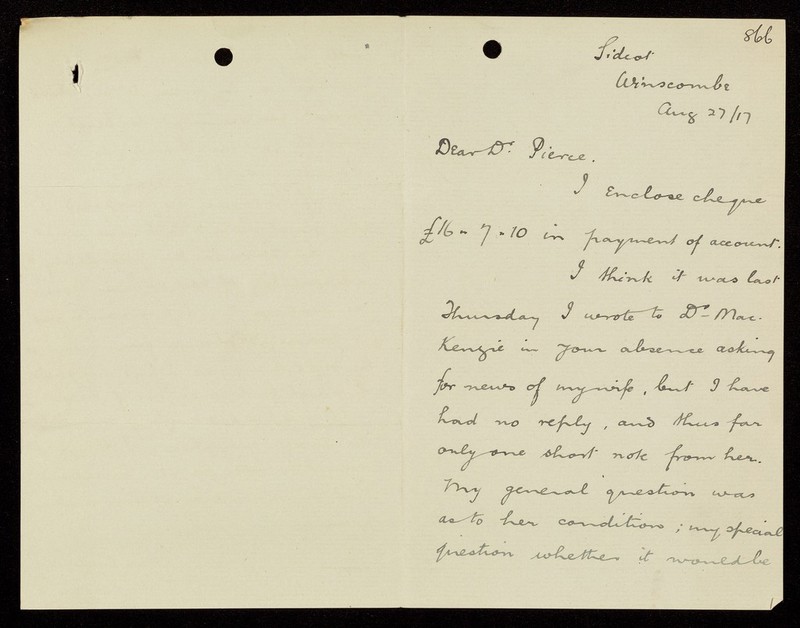 866
Sidcot
Winscombe
Aug 27/17
Dear Dr. Pierce.
I enclose cheque
£16-7-10 in payment of account.
I think it was last
Thursday I wrote to Dr Mac-
Kenzie in your absence asking
for news of my wife, but I have
had no reply, and thus far
only one short note from her.
My general question was
as to her condition; my special
question whether it would be